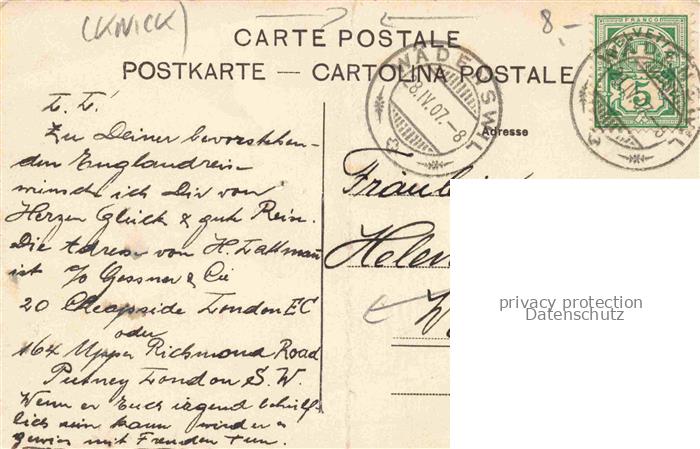 (KNICK)
8.-
CARTE POSTALE
POSTKARTE — CARTOLINA POSTALE
FRANCO
HELVETIA
5
WÄDENSWIL
8.IV.07.-8
Adresse
L. L!
Zu Deiner bevorstehen-
den Englandreise
wünsche ich Dir von
Herzen Glück & gute Reise.
Die Adresse von H. Lattmann
ist c/o Gessner & Cie
20 Cheapside London EC
oder
164 Upper Richmond Road
Putney London S.W.
Wenn er Euch irgend behülf-
lich sein kann wird er es
gewiss mit Freuden tun.
Fräulein
Helen
W
privacy protection
Datenschutz